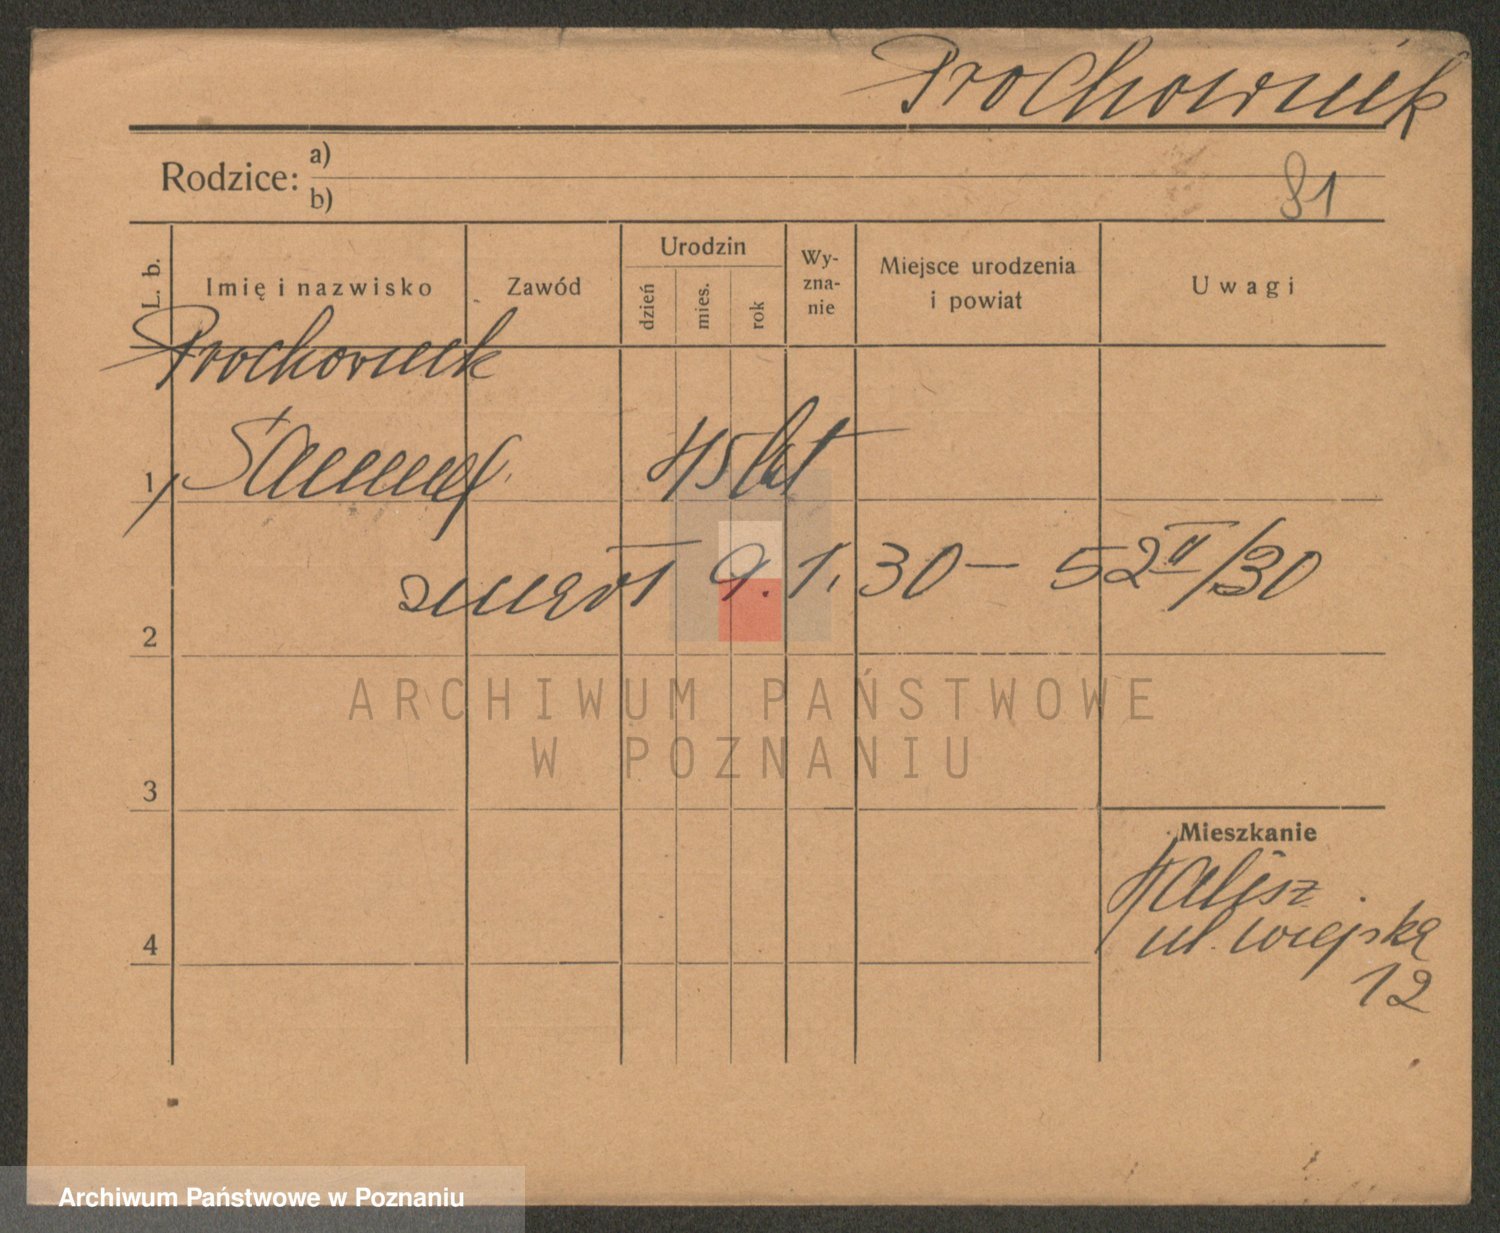 Prochownik
Rodzice: a)
b)
81
L. b.
Imię i nazwisko
Zawód
Urodzin
dzień
mies.
rok
Wy-
zna-
nie
Miejsce urodzenia
i powiat
Uwagi
Prochownik
1 Samuel 45 lat
zmarł 9. 1. 30 — 52 II/30
2
ARCHIWUM PAŃSTWOWE
W POZNANIU
3
Mieszkanie
Kalisz
ul. Wiejska
4
12
Archiwum Państwowe w Poznaniu